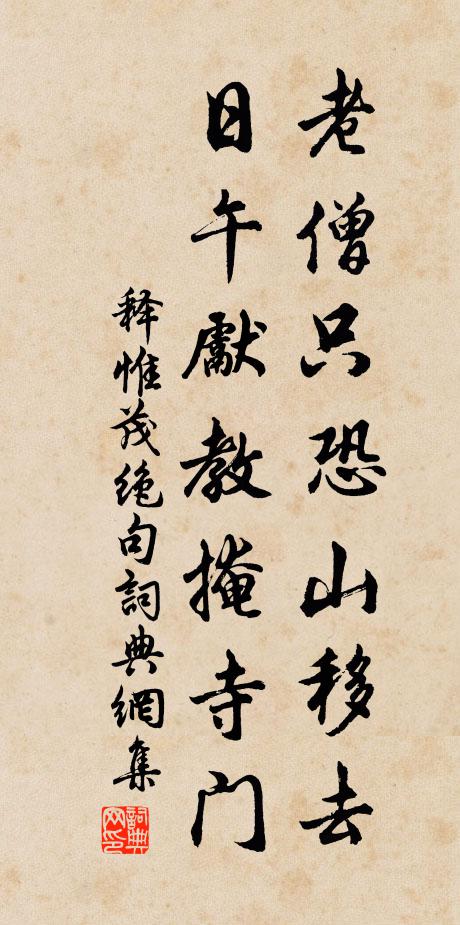 老僧只恐山移去
日午獻教掩寺門
释惟茂绝句詞典網集
詞典网印